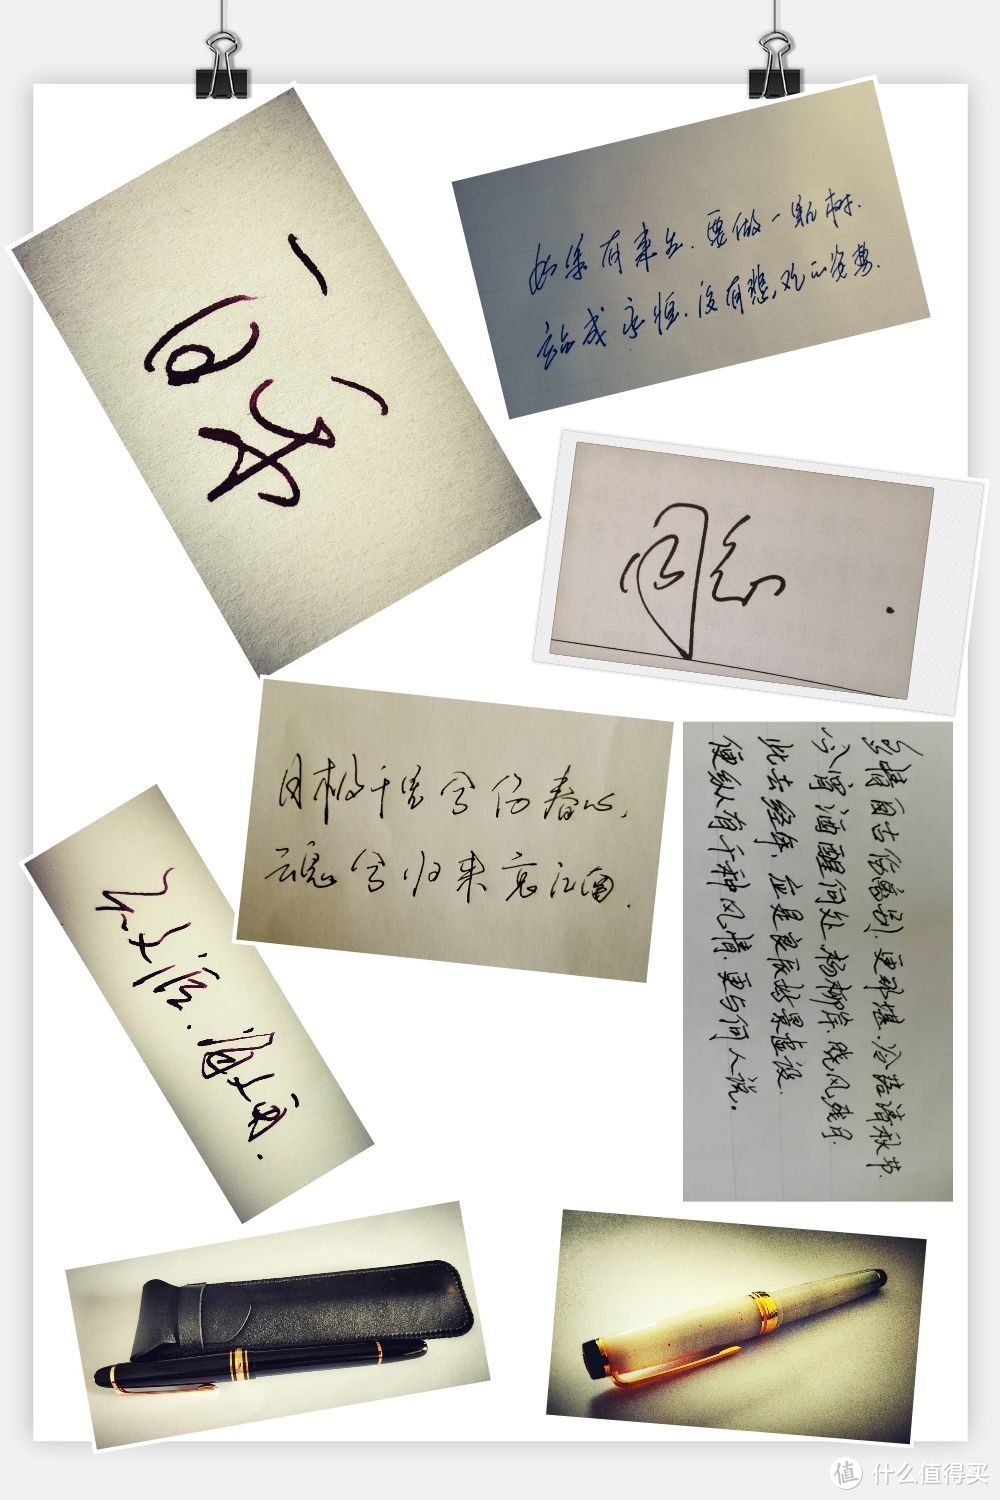 如果有来生.要做一颗树.
站成永恒.没有悲欢的姿势.
目极千里兮伤春心,
魂兮归来哀江南.
多情自古伤离别,更那堪,冷落清秋节.
今宵酒醒何处 杨柳岸,晓风残月.
此去经年,应是良辰好景虚设.
便纵有千种风情,更与何人说。
值 什么值得买